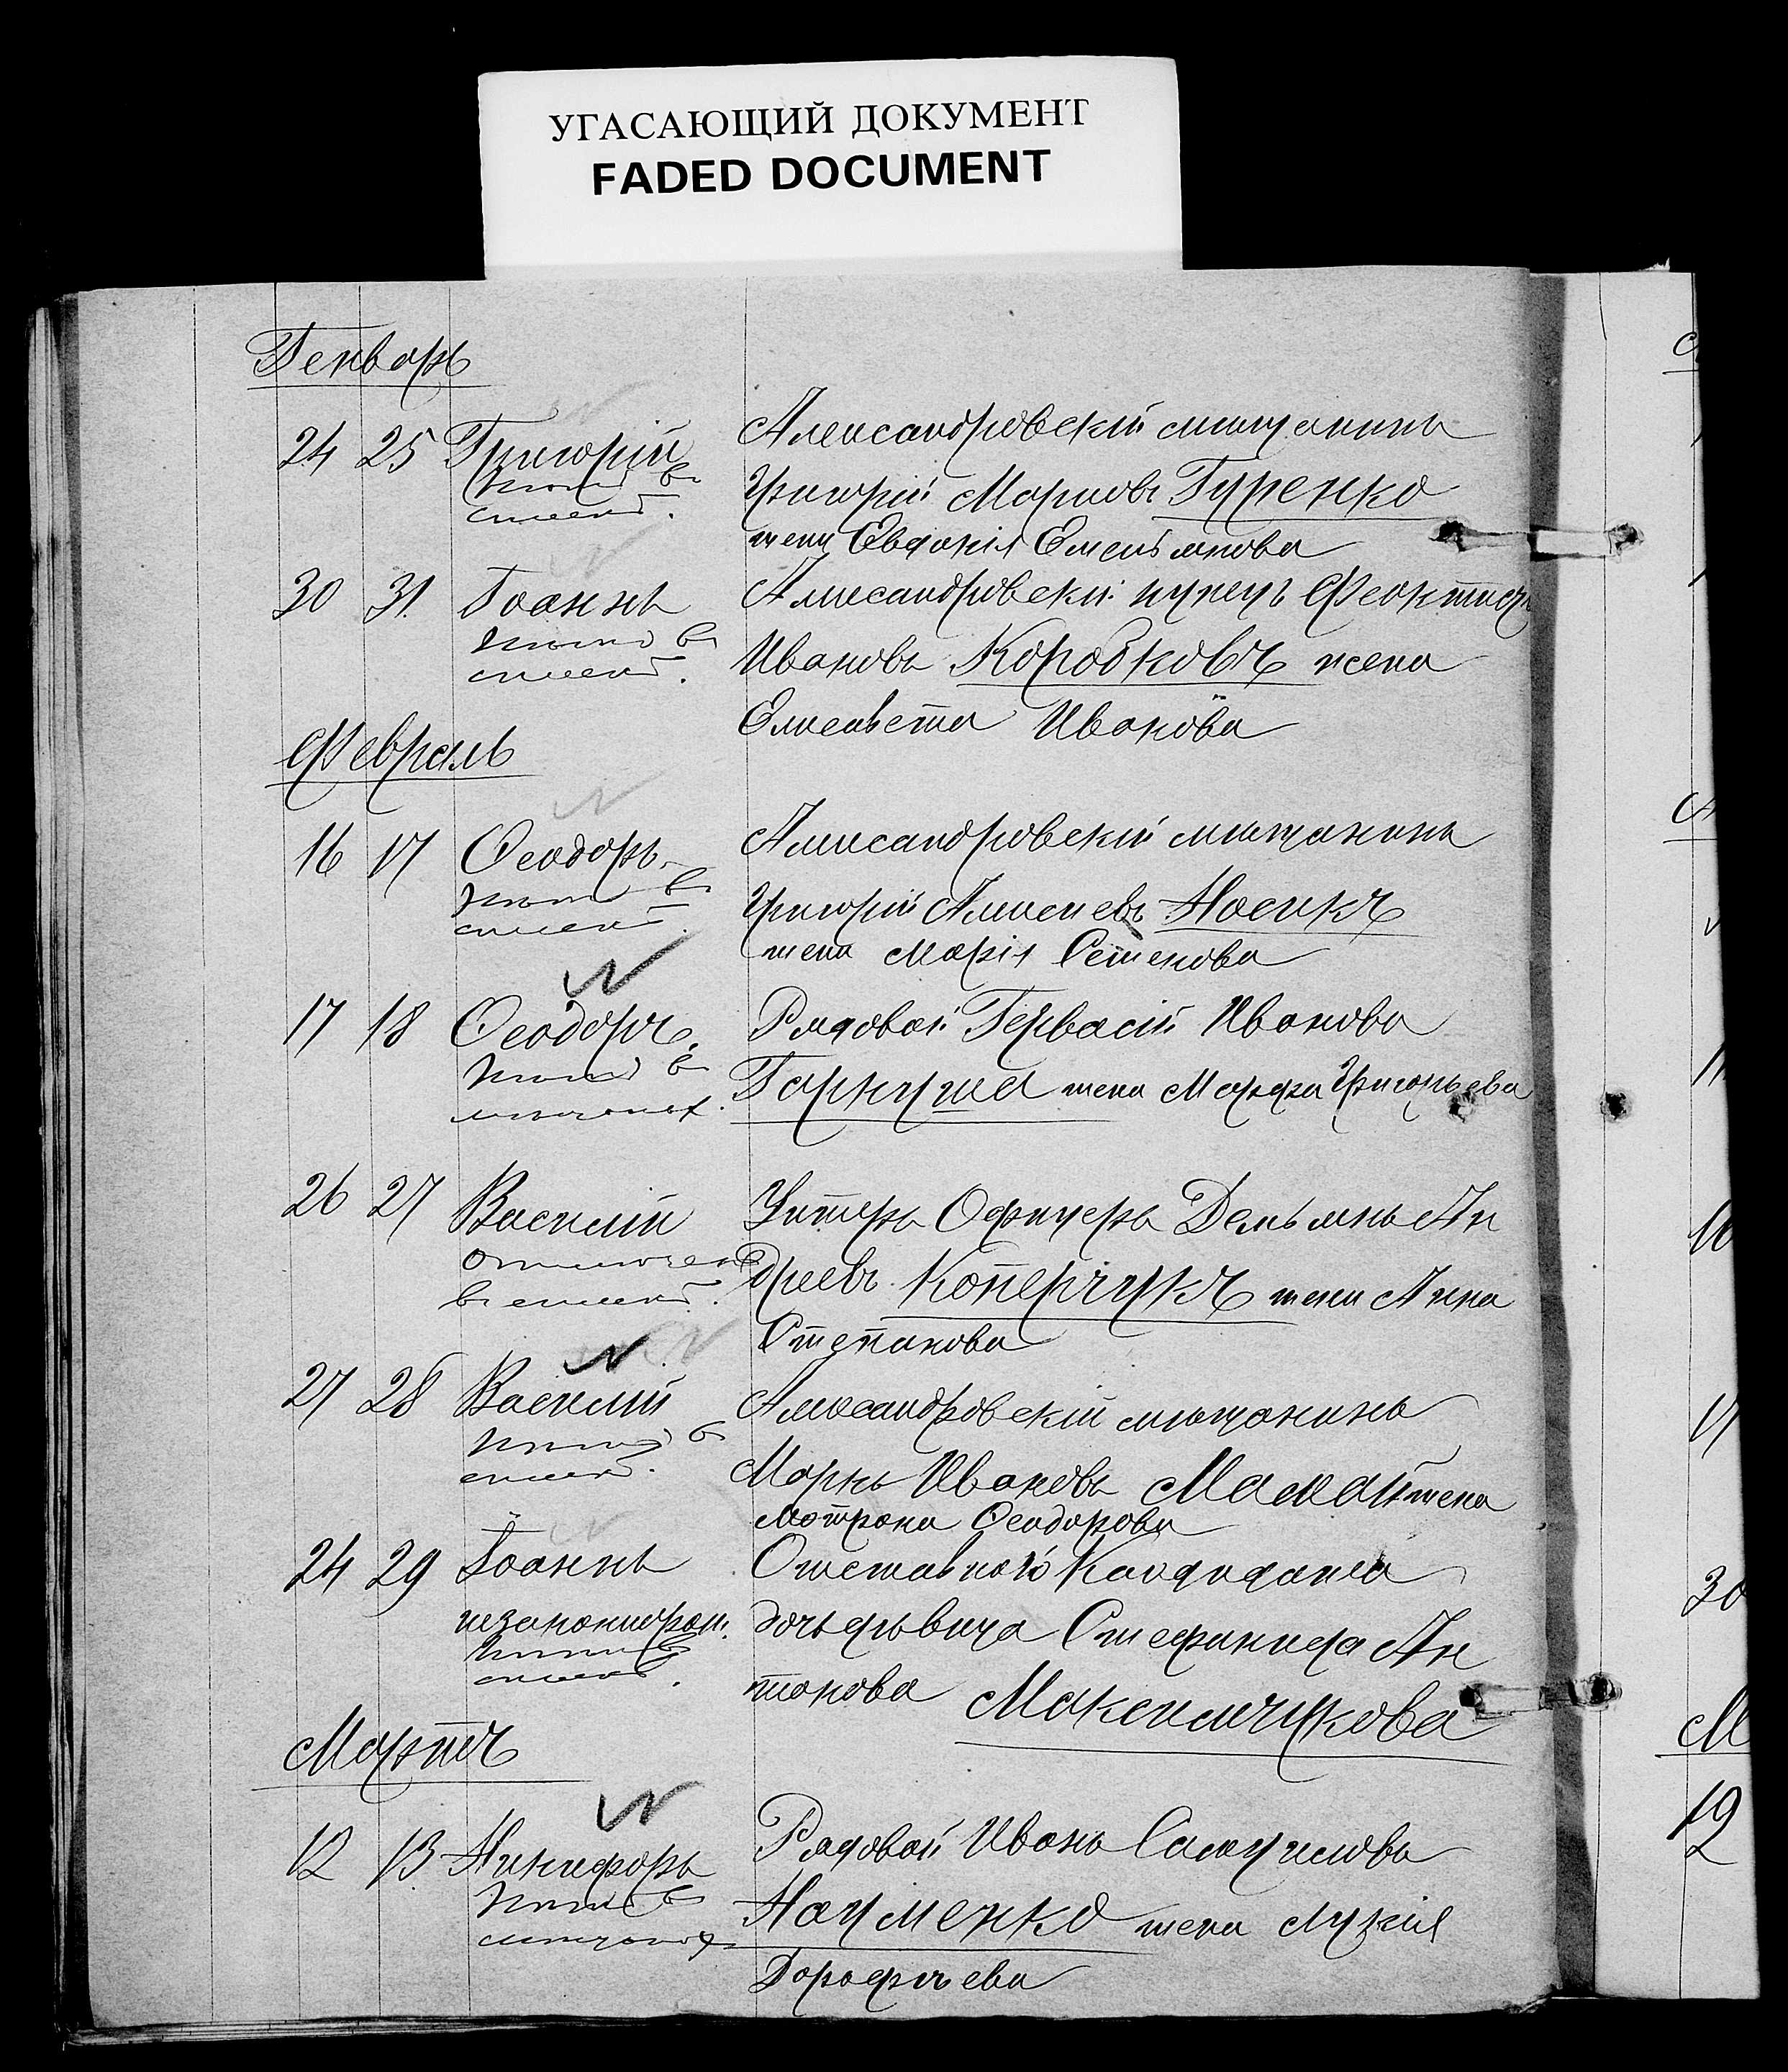 УГАСАЮЩИЙ ДОКУМЕНТ
FADED DOCUMENT
Генварь
24 25 Григорій Александровскій мѣщанинъ
Григорій Марковъ Гуренко
жена Евдокія Емельянова
30 31 Іоаннъ Александровскій купецъ Феоктистъ
Ивановъ Коробковъ жена
Елисавета Иванова
Февраль
16 17 Ѳеодоръ Александровскій мѣщанинъ
Григорій Алексѣевъ Носикъ
жена Марія Семенова
17 18 Ѳеодоръ Рядовой Гервасій Ивановъ
Гаркуша жена Марфа Григорьева
26 27 Василій Унтеръ Офицеръ Демьянъ Ан
дреевъ Коперчукъ жена Анна
Степанова
27 28 Василій Александровскій мѣщанинъ
Маркъ Ивановъ Мамай жена
Мотрона Ѳеодорова
24 29 Іоаннъ Отставного
незаконнорож. дочь дѣвица Стефанида Ан
тонова Максимчукова
Мартъ
12 13 Никифоръ Рядовой Иванъ Самуиловъ
Науменко жена Лукія
Дорофѣева
19
30